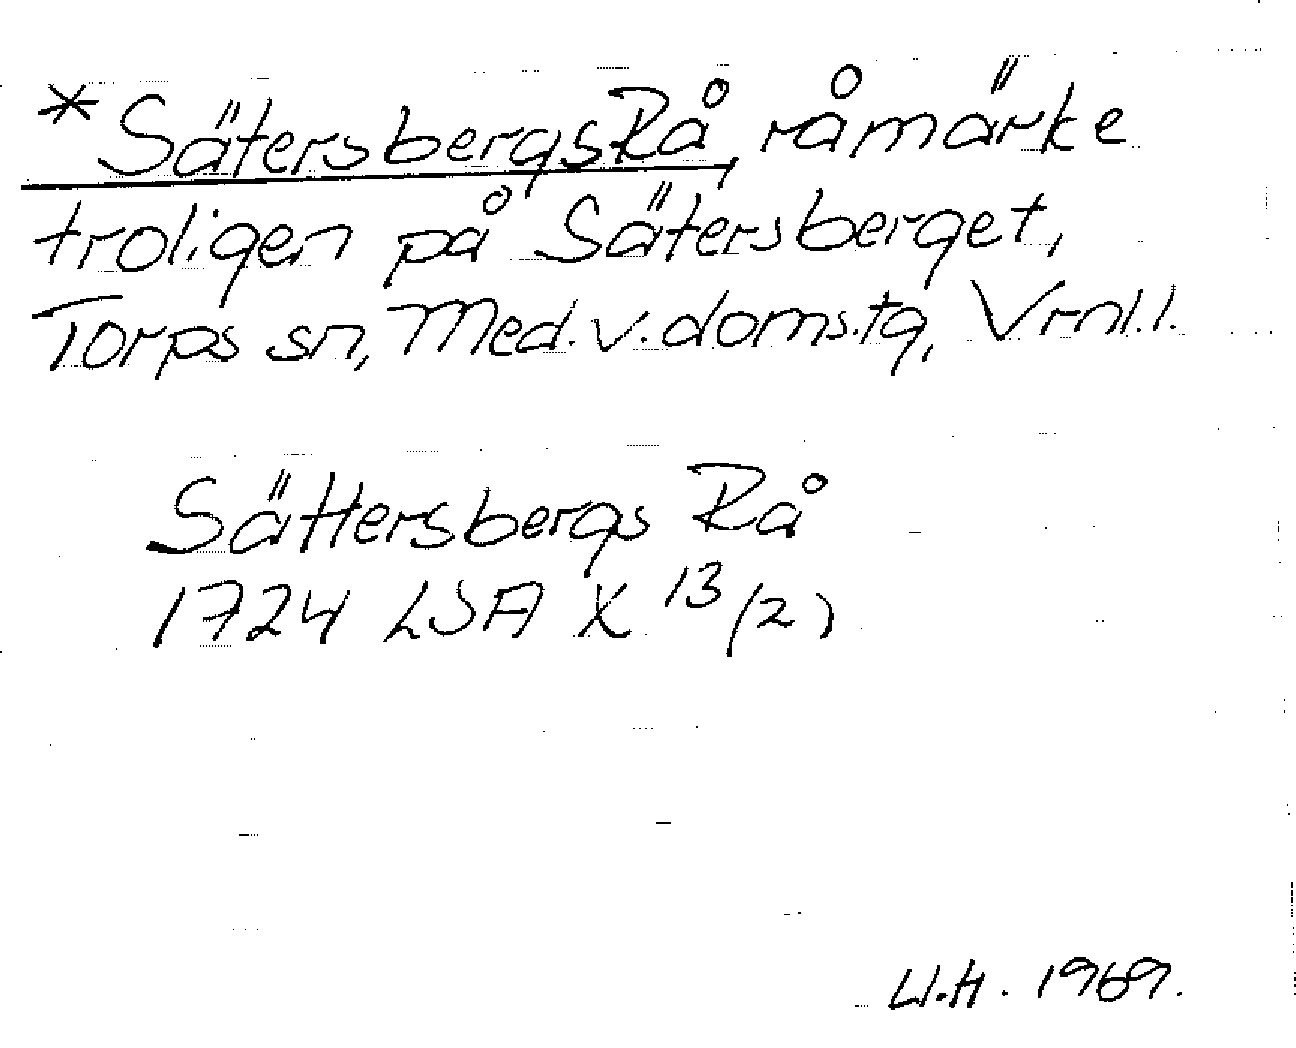 *SätersbergsRå, råmärke
troligen på Sätersberget,
Torps sn, Med.v.doms.tg, Vrml.l.
Sättersbergs Rå
1724 LSA X 13/(2)
W.H. 1969.